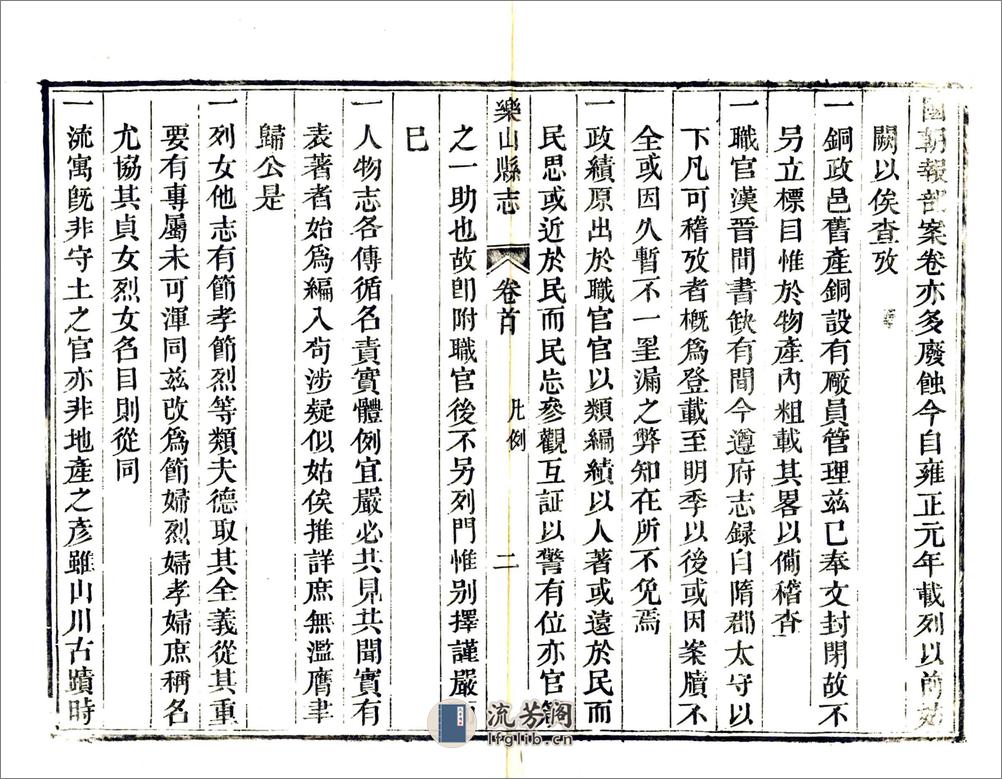 國朝報部案卷亦多廢蝕今自雍正元年載列以前姑
闕以俟查攷
一銅政邑舊產銅設有厰員管理玆已奉文封閉故不
另立標目惟於物產內粗載其畧以俻稽查
一職官漢晉間書缺有間今遵府志録自隋郡太守以
下凡可稽攷者槪爲登載至明季以後或因案牘不
全或因久暫不一罣漏之弊知在所不免焉
一政績原出於職官官以類編績以人著或遠於民而
民思或近於民而民忘參觀互証以警有位亦官箴
樂山縣志
卷首
凡例
二
之一助也故卽附職官後不另列門惟别擇謹嚴
已
一人物志各傳循名責實體例宜嚴必共見共聞實有
表著者始爲編入茍涉疑似姑俟推詳庶無濫膺聿
歸公是
一列女他志有節孝節烈等類夫德取其全義從其重
要有專屬未可渾同玆改爲節婦烈婦孝婦庶稱名
尤協其貞女烈女名目則從同
一流寓旣非守土之官亦非地產之彥雖山川古蹟時
流芳閣
lfglib.cn